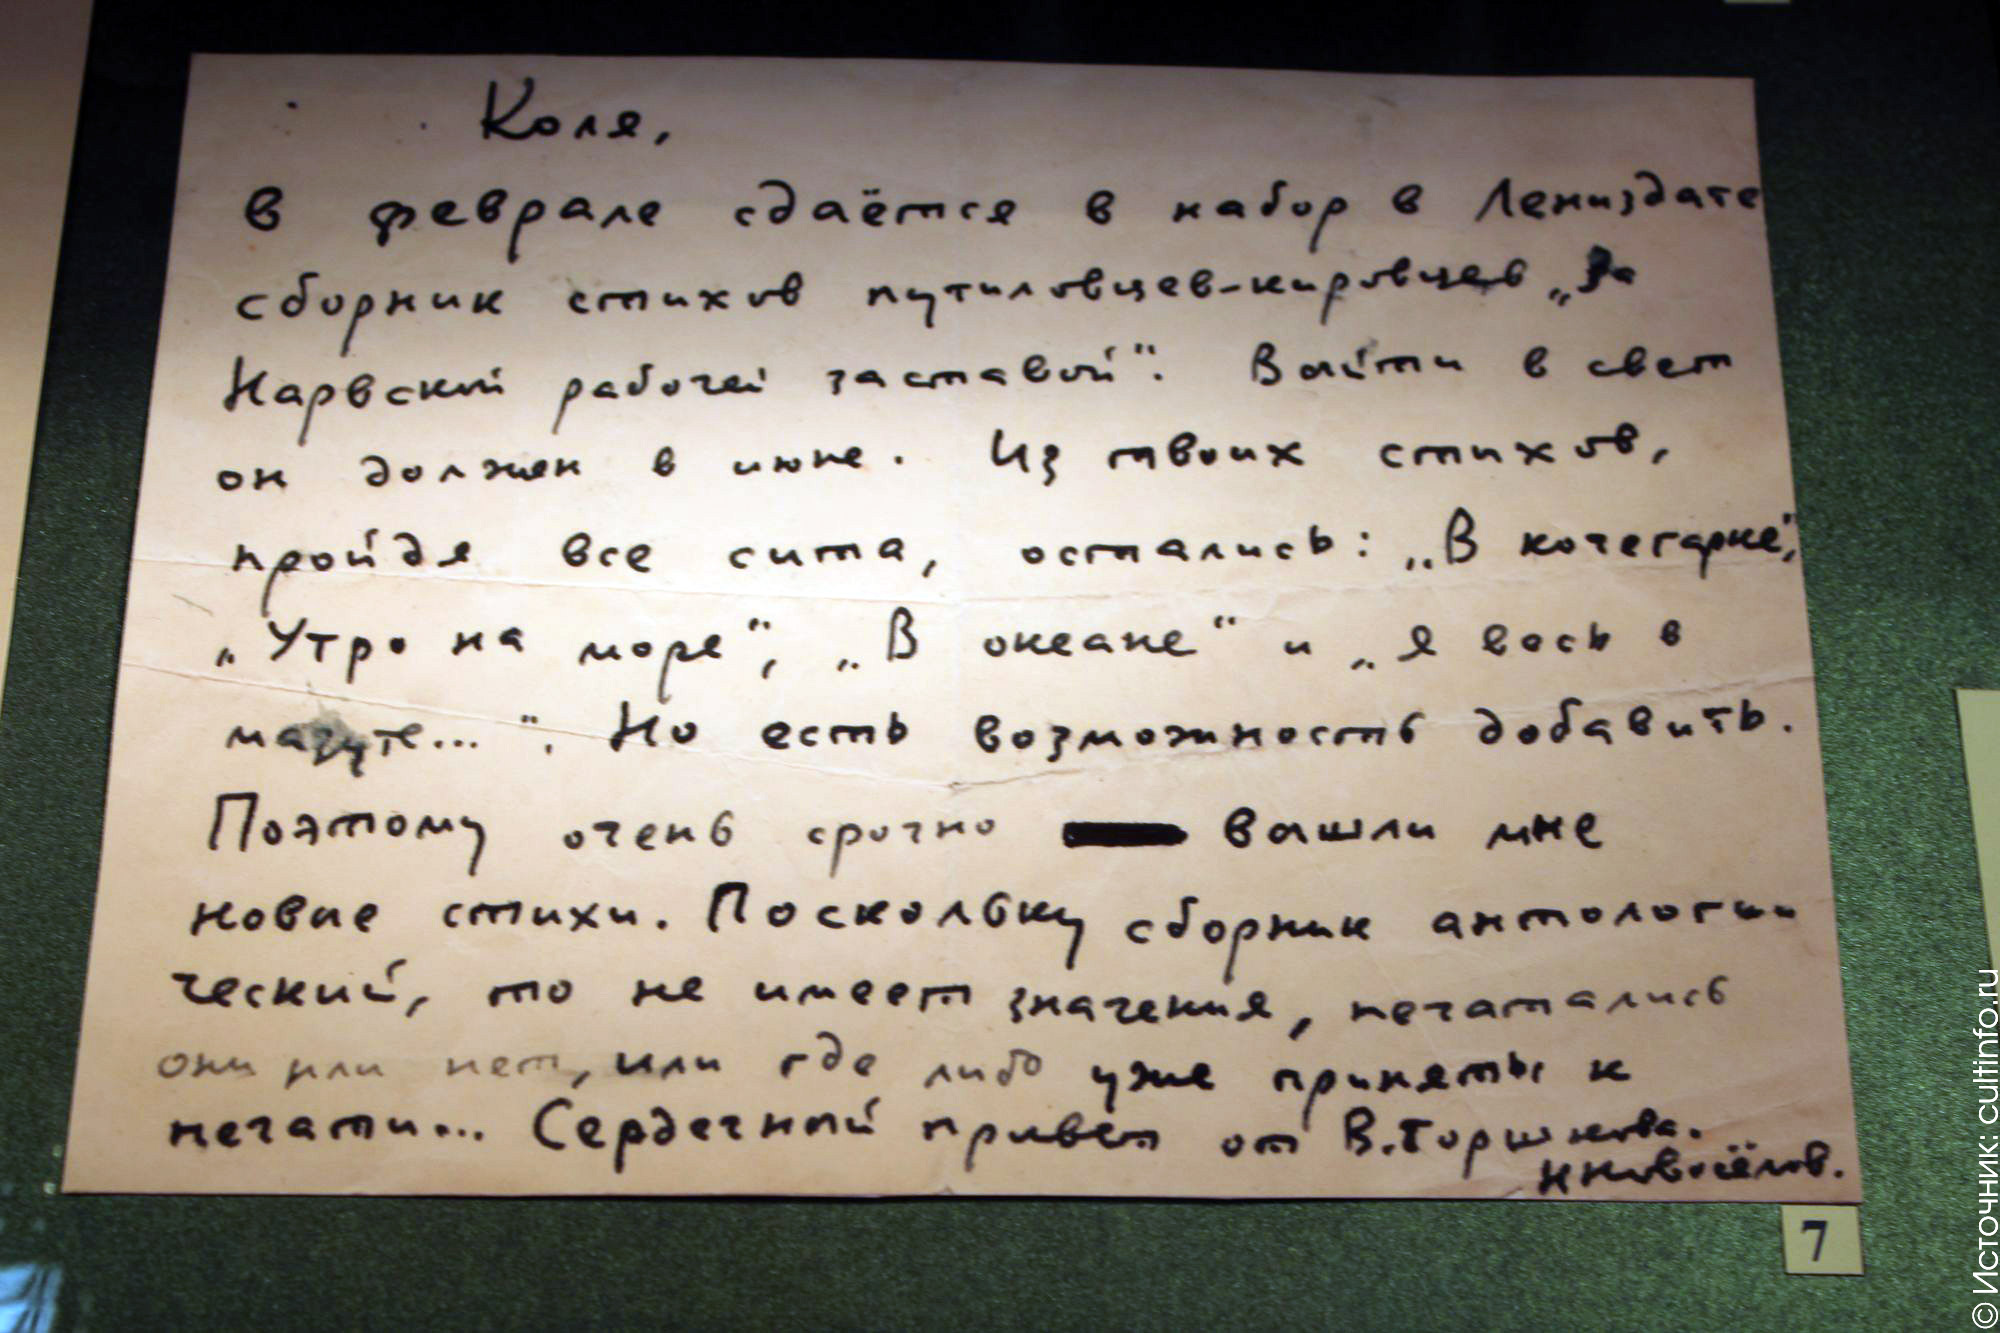 Коля,
в феврале сдаётся в набор в Лениздате
сборник стихов путиловцев-кировцев „За
Нарвской рабочей заставой“. Выйти в свет
он должен в июне. Из твоих стихов,
пройдя все сита, остались: „В кочегарке“,
„Утро на море“, „В океане“ и „Я весь в
мазуте...“. Но есть возможность добавить.
Поэтому очень срочно вышли мне
новые стихи. Поскольку сборник антологи-
ческий, то не имеет значения, печатались
они или нет, или где либо уже приняты к
печати... Сердечный привет от В. Горшкова.
Н Новосёлов.
7
© Источник: cultinfo.ru